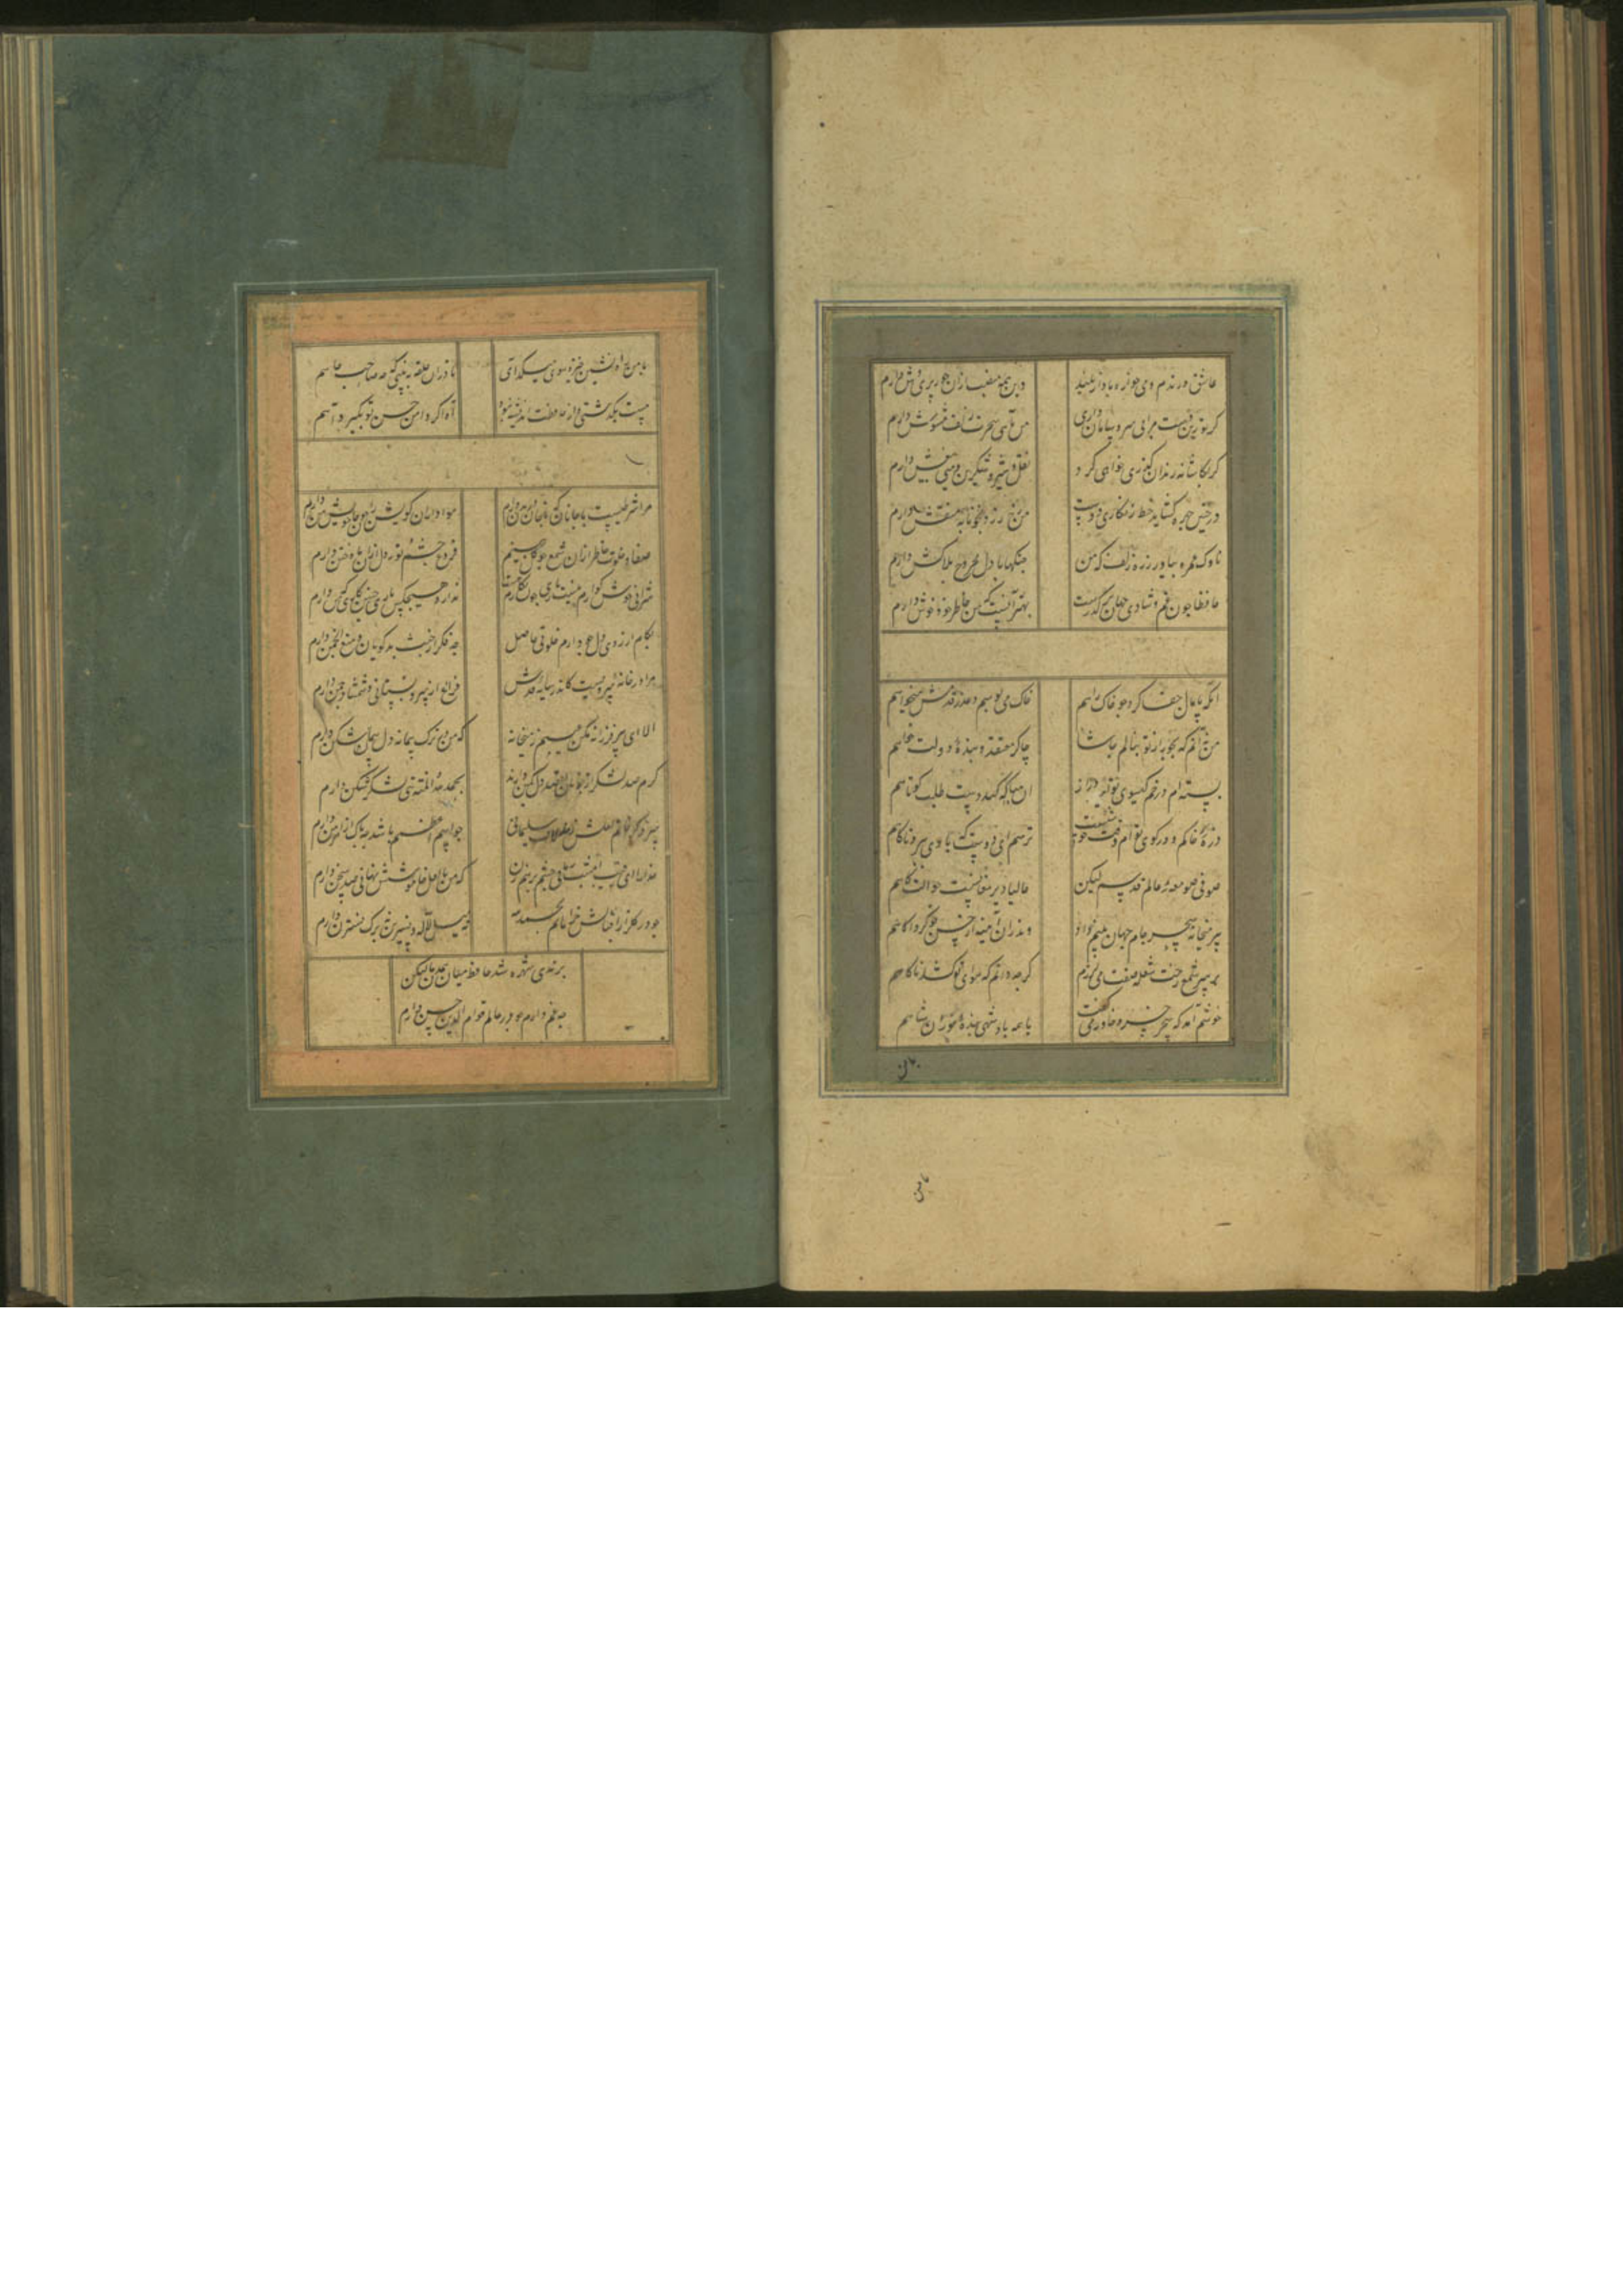 عاشق و رندم و می خواره بآواز بلند
وین همه منصب ازان حور پری وش دارم
گر تو زین دست مرا بی سر و سامان داری
من بآه سحرت زلف مشوش دارم
گر بکاشانه رندان گذری خواهی کرد
نقل شعر شکرین و می بیغش دارم
ور چنین چهره گشاید خط زنگاری دوست
من رخ زرد بخونابه منقش دارم
ناوک غمزه بیاور زره زلف که من
جنگها با دل مجروح بلاکش دارم
حافظا چون غم و شادی جهان در گذرست
بهتر آنست که من خاطر خود خوش دارم
آنکه پامال جفا کرد چو خاک راهم
خاک می بوسم و عذر قدمش میخواهم
من نه آنم که بجور از تو بنالم حاشا
چاکر معتقد و بنده دولت خواهم
بسته ام در خم گیسوی تو امید دراز
آن مبادا که کند دست طلب کوتاهم
ذره خاکم و در کوی توام وقت خوشست
ترسم ای دوست که بادی ببرد ناگاهم
صوفی صومعه عالم قدسم لیکن
حالیا دیر مغانست حوالتگاهم
پیر میخانه سحر جام جهان بینم داد
و اندران آینه از حسن تو کرد آگاهم
بر سر شمع قدت شعله صفت می لرزم
گرچه دانم که هوای تو کشد ناگاهم
خوشم آمد که سحر خسرو خاور می گفت
با همه پادشهی بنده تورانشاهم
با من راه نشین خیز و سوی میکده آی
تا دران حلقه به بینی که چه صاحب جاهم
مست بگذشتی و از حافظت اندیشه نبود
آه اگر دامن حسن تو بگیرد آهم
مرا شرطیست با جانان که تا جان در بدن دارم
هواداران کویش را چو جان خویشتن دارم
صفای خلوت خاطر ازان شمع چو گل بینم
فروغ چشم و نور دل ازان ماه ختن دارم
شرابی خوش گوارم هست و یاری چون نگارم هست
ندارد هیچکس یاری چنین یاری که من دارم
بکام و آرزوی دل چو دارم خلوتی حاصل
چه فکر از خبث بدگویان میان انجمن دارم
مرا در خانه سرویست کاندر سایه قدش
فراغ از سرو بستانی و شمشاد چمن دارم
الا ای پیر فرزانه مکن عیبم ز میخانه
که من در ترک پیمانه دلی پیمان شکن دارم
گرم صد لشکر از خوبان بقصد دل کمین دارند
بحمد الله و المنه بتی لشکر شکن دارم
سزد کز خاتم لعلش زنم لاف سلیمانی
چو اسم اعظمم باشد چه باک از اهرمن دارم
خدا را ای رقیب امشب زمانی چشم بر هم زن
که من با لعل خاموشش نهانی صد سخن دارم
چو در گلزار اقبالش خرامانم بحمد الله
نه میل لاله و نسرین نه برگ نسترن دارم
برندی شهره شد حافظ میان همدمان لیکن
چه غم دارم چو در عالم قوام الدین حسن دارم
با من